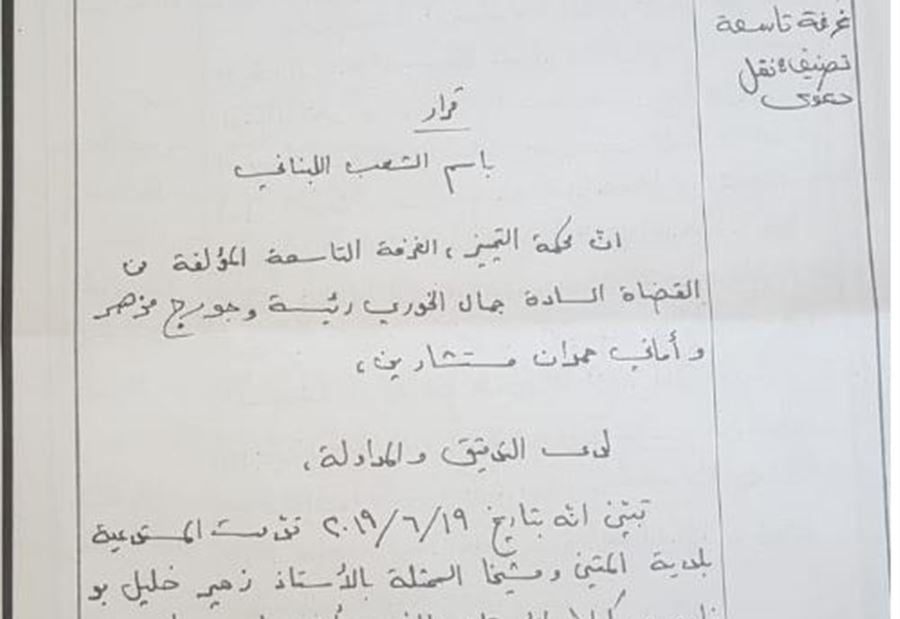 غرفة تاسعة
تصنيف: نقل
دعوى
قرار
باسم الشعب اللبناني
انّ محكمة التمييز، الغرفة التاسعة المؤلفة من
القضاة السادة جمال الخوري رئيسة وجورج مزهر
و أماني حمدان مستشارين،
لدى التدقيق والمداولة،
تبيّن انه بتاريخ ٢٠١٩/٦/١٩ تقدّمت المستدعية
بلدية المتين ومشيخا الممثلة بالأستاذ زهير خليل بو